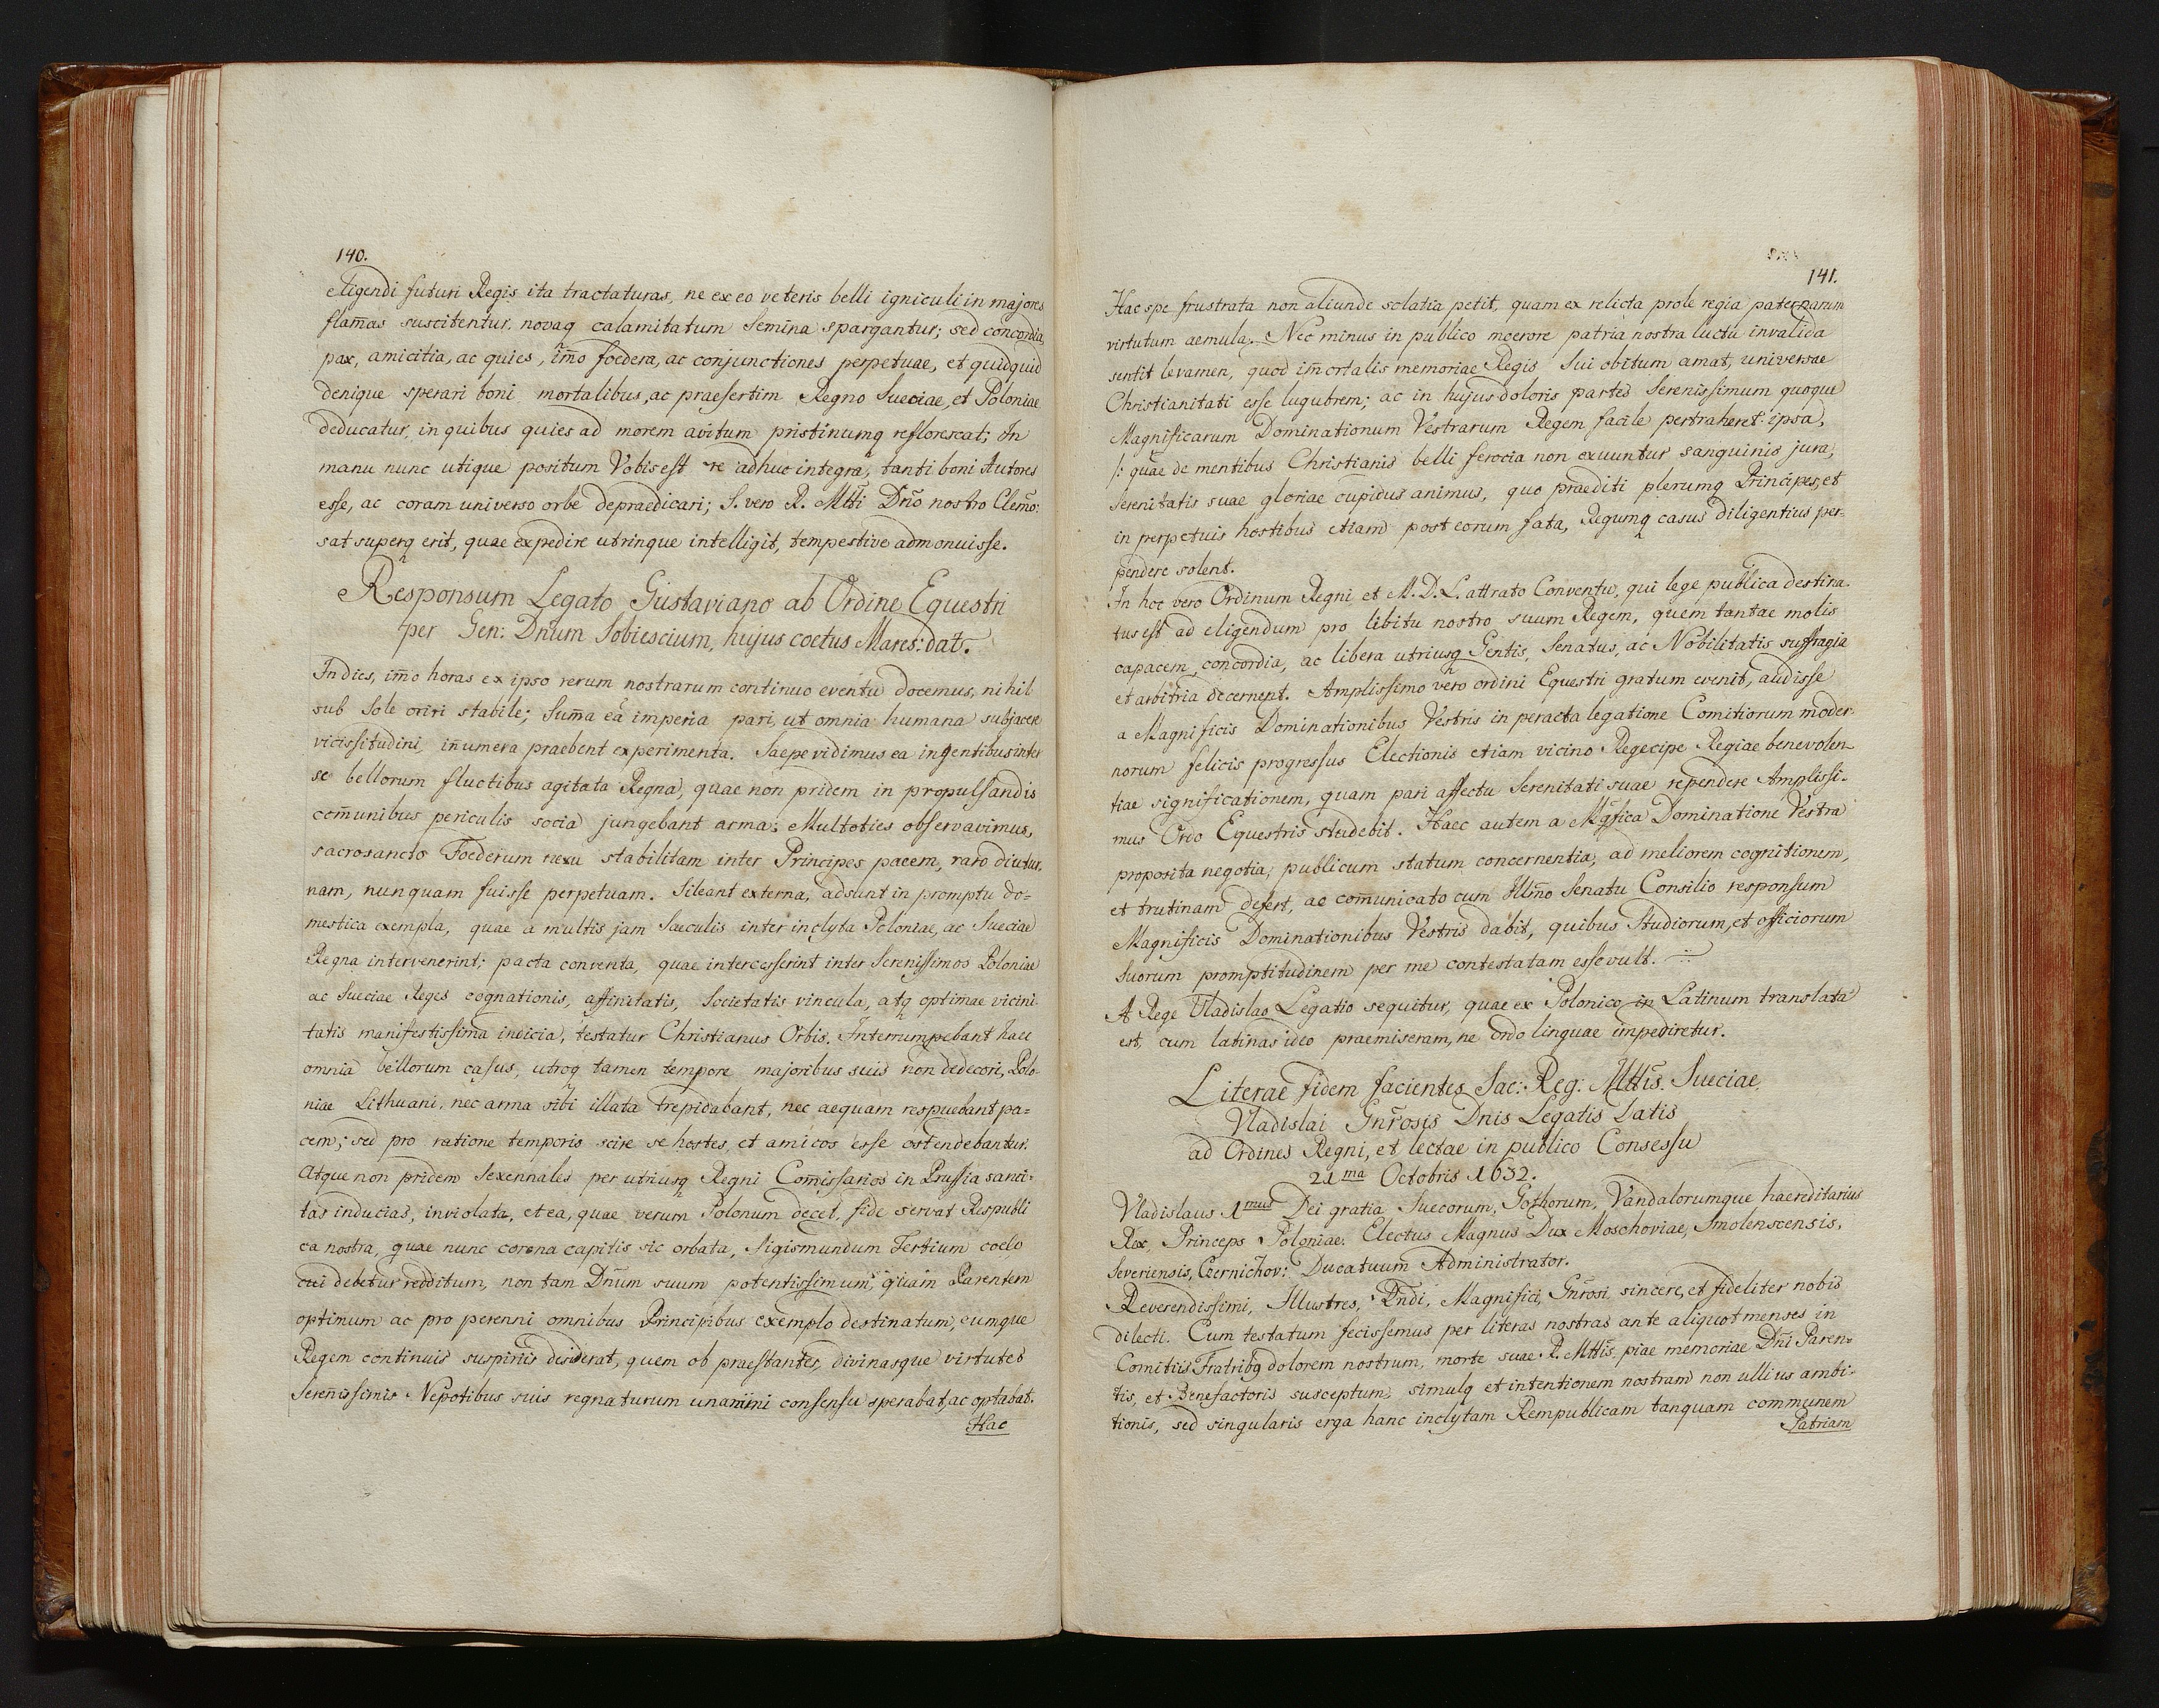 140.
eligendi futuri Regis ita tractaturas, ne ex eo veteris belli igniculi in majores
flam̄as suscitentur, novaq calamitatum Semina spargantur; sed concordia,
pax, amicitia, ac quies, im̄o foedera, ac conjunctiones perpetuae, et quidquid
denique sperari boni mortalibus, ac praesertim Regno Sueciae, et Poloniae
deducatur, in quibus quies ad morem avitum pristinumq reflorescat; In
manu nunc utique positum Vobis est re adhuc integra, tanti boni Autores
esse, ac coram universo orbe depraedicari; S. vero R. Mtti Dn̄o nostro Clem̄o:
sat superq erit, quae expedire utrinque intelligit, tempestive admonuisse.
Responsum Legato Gustaviano ab Ordine Equestri
per Gen: Dn̄um Sobiescium, hujus coetus Mares: dat.
In dies, im̄o horas ex ipso rerum nostrarum continuo eventu docemus, nihil
sub Sole oriri stabile; Sum̄a ea imperia pari, ut omnia humana subjacere
vicissitudini, in̄umera praebent experimenta. Saepe vidimus ea ingentibus inter
se bellorum fluctibus agitata Regna, quae non pridem in propulsandis
com̄unibus periculis socia jungebant arma; Multoties observavimus,
sacrosancto Foederum nexu stabilitam inter Principes pacem, raro diutur,
nam, nunquam fuisse perpetuam. Sileant externa, adsunt in promptu do=
mestica exempla, quae a multis jam Saeculis inter inclyta Poloniae, ac Sueciae
Regna intervenerint; pacta conventa, quae intercesserint inter Serenissimos Poloniae
ac Sueciae Reges cognationis, affinitatis, Societatis vincula, atq optimae vicini
tatis manifestissima indicia, testatur Christianus Orbis. Interrumpebant haec
omnia bellorum casus, utroq tamen tempore majoribus suis non dedecori, Polo-
niae Lithuani, nec arma sibi illata trepidabant, nec aequam respuebant pa=
cem; sed pro ratione temporis scire se hostes, et amicos esse ostendebantur.
Atque non pridem Sexennales per utriusq Regni Com̄issarios in Prussia sanci-
tas inducias, inviolata, et ea, quae verum Polonum decet, fide servat Respubli
ca nostra, quae nunc corona capitis sic orbata, Sigismundum Tertium coelo
cui debetur redditum, non tam Dn̄um suum potentissimum, quam Parentem
optimum ac pro perenni omnibus Principibus exemplo destinatum, eumque
Regem continuis suspiriis desiderat, quem ob praestantes, divinasque virtutes
Serenissimis Nepotibus suis regnaturum unanimi consensu sperabat, ac optabat.
Hac
141.
Hac spe frustrata non aliunde solatia petit, quam ex relicta prole regia paternarum
virtutum aemula. Nec minus in publico moerore patria nostra luctu invalida
sentit levamen, quod im̄ortalis memoriae Regis Sui obitum amat, universae
Christianitati esse lugubrem; ac in hujus doloris partes Serenissimum quoque
Magnificarum Dominationum Vestrarum Regem facile pertraheret ipsa,
/: quae de mentibus Christianis belli ferocia non exuuntur sanguinis jura;
serenitatis suae gloriae cupidus animus, quo praediti plerumq Principes, et
in perpetuis hostibus etiam post eorum fata, Regumq casus diligentius per-
pendere solent.
In hoc vero Ordinum Regni et M. D. L. attrato Conventu, qui lege publica destina-
tus est ad eligendum pro libitu nostro suum Regem, quem tantae molis
capacem, concordia, ac libera utriusq Gentis, Senatus, ac Nobilitatis suffragia
et arbitria decernent. Amplissimo vero ordini Equestri gratum evenit, audisse
a Magnificis Dominationibus Vestris in peracta legatione Comitiorum moder-
norum felicis progressus Electionis etiam vicino Rege cipe Regiae benevolen-
tiae significationem, quam pari affectu Serenitati suae rependere Amplissi-
mus Ordo Equestris studebit. Haec autem a Mgfica Dominatione Vestra
proposita negotia, publicum statum concernentia, ad meliorem cognitionem,
et trutinam defert, ac com̄unicato cum Illm̄o Senatu Consilio responsum
Magnificis Dominationibus Vestris dabit, quibus Studiorum, et officiorum
Suorum promptitudinem per me contestatam esse vult.
A Rege Vladislao Legatio sequitur, quae ex Polonico in Latinum translata
est, cum latinas ideo praemiseram, ne ordo linguae impediretur.
Literae fidem facientes Sac: Reg: Mttis. Sueciae
Vladislai Gnr̄osis Dnis Legatis datis
ad Ordines Regni, et lectae in publico Consessu
21ma Octobris 1632.
Vladislaus 1mus Dei gratia Suecorum, Gothorum, Vandalorumque haereditarius
Rex, Princeps Poloniae. Electus Magnus Dux Moschoviae, Smolenscensis,
Severiensis, Czernichov: Ducatuum Administrator.
Reverendissimi, Illustres, Rn̄di, Magnifici, Gnr̄osi, sincere, et fideliter nobis
dilecti. Cum testatum fecissemus per literas nostras ante aliquot menses in
Comitiis Fratribq dolorem nostrum, morte suae R. Mttis, piae memoriae Dn̄i Paren-
tis, et Benefactoris susceptum, simulq et intentionem nostram non ullius ambi-
tionis, sed singularis erga hanc inclytam Rempublicam tanquam communem
Patriam